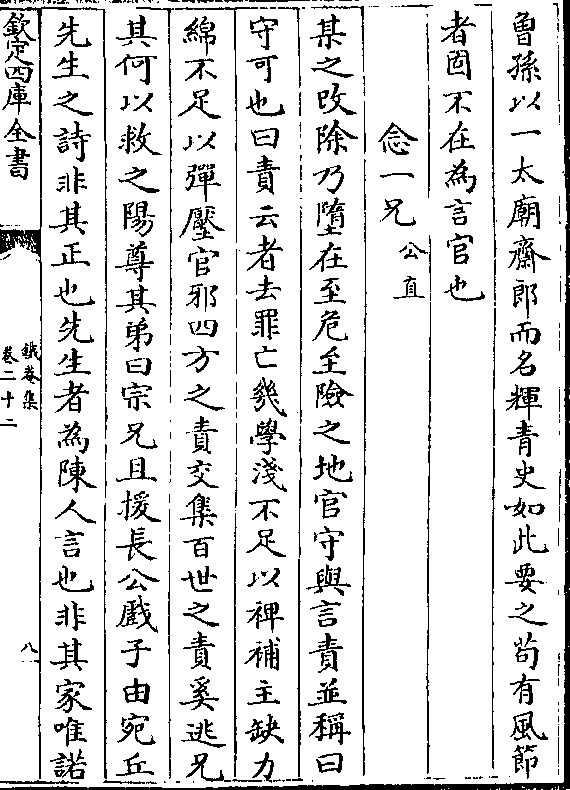 魯孫以一太廟齋郎而名輝青史如此要之茍有風節
者固不在為言官也
念一兄公直
某之改除乃墮在至危至險之地官守與言責並稱曰
守可也曰責云者去罪亡幾學淺不足以裨補主缺力
綿不足以彈壓官邪四方之責交集百世之責奚逃兄
其何以救之陽尊其弟曰宗兄且援長公戲子由宛丘
先生之詩非其正也先生者為陳人言也非其家唯諾
欽定四庫全書
鐵菴集
卷二十二
八